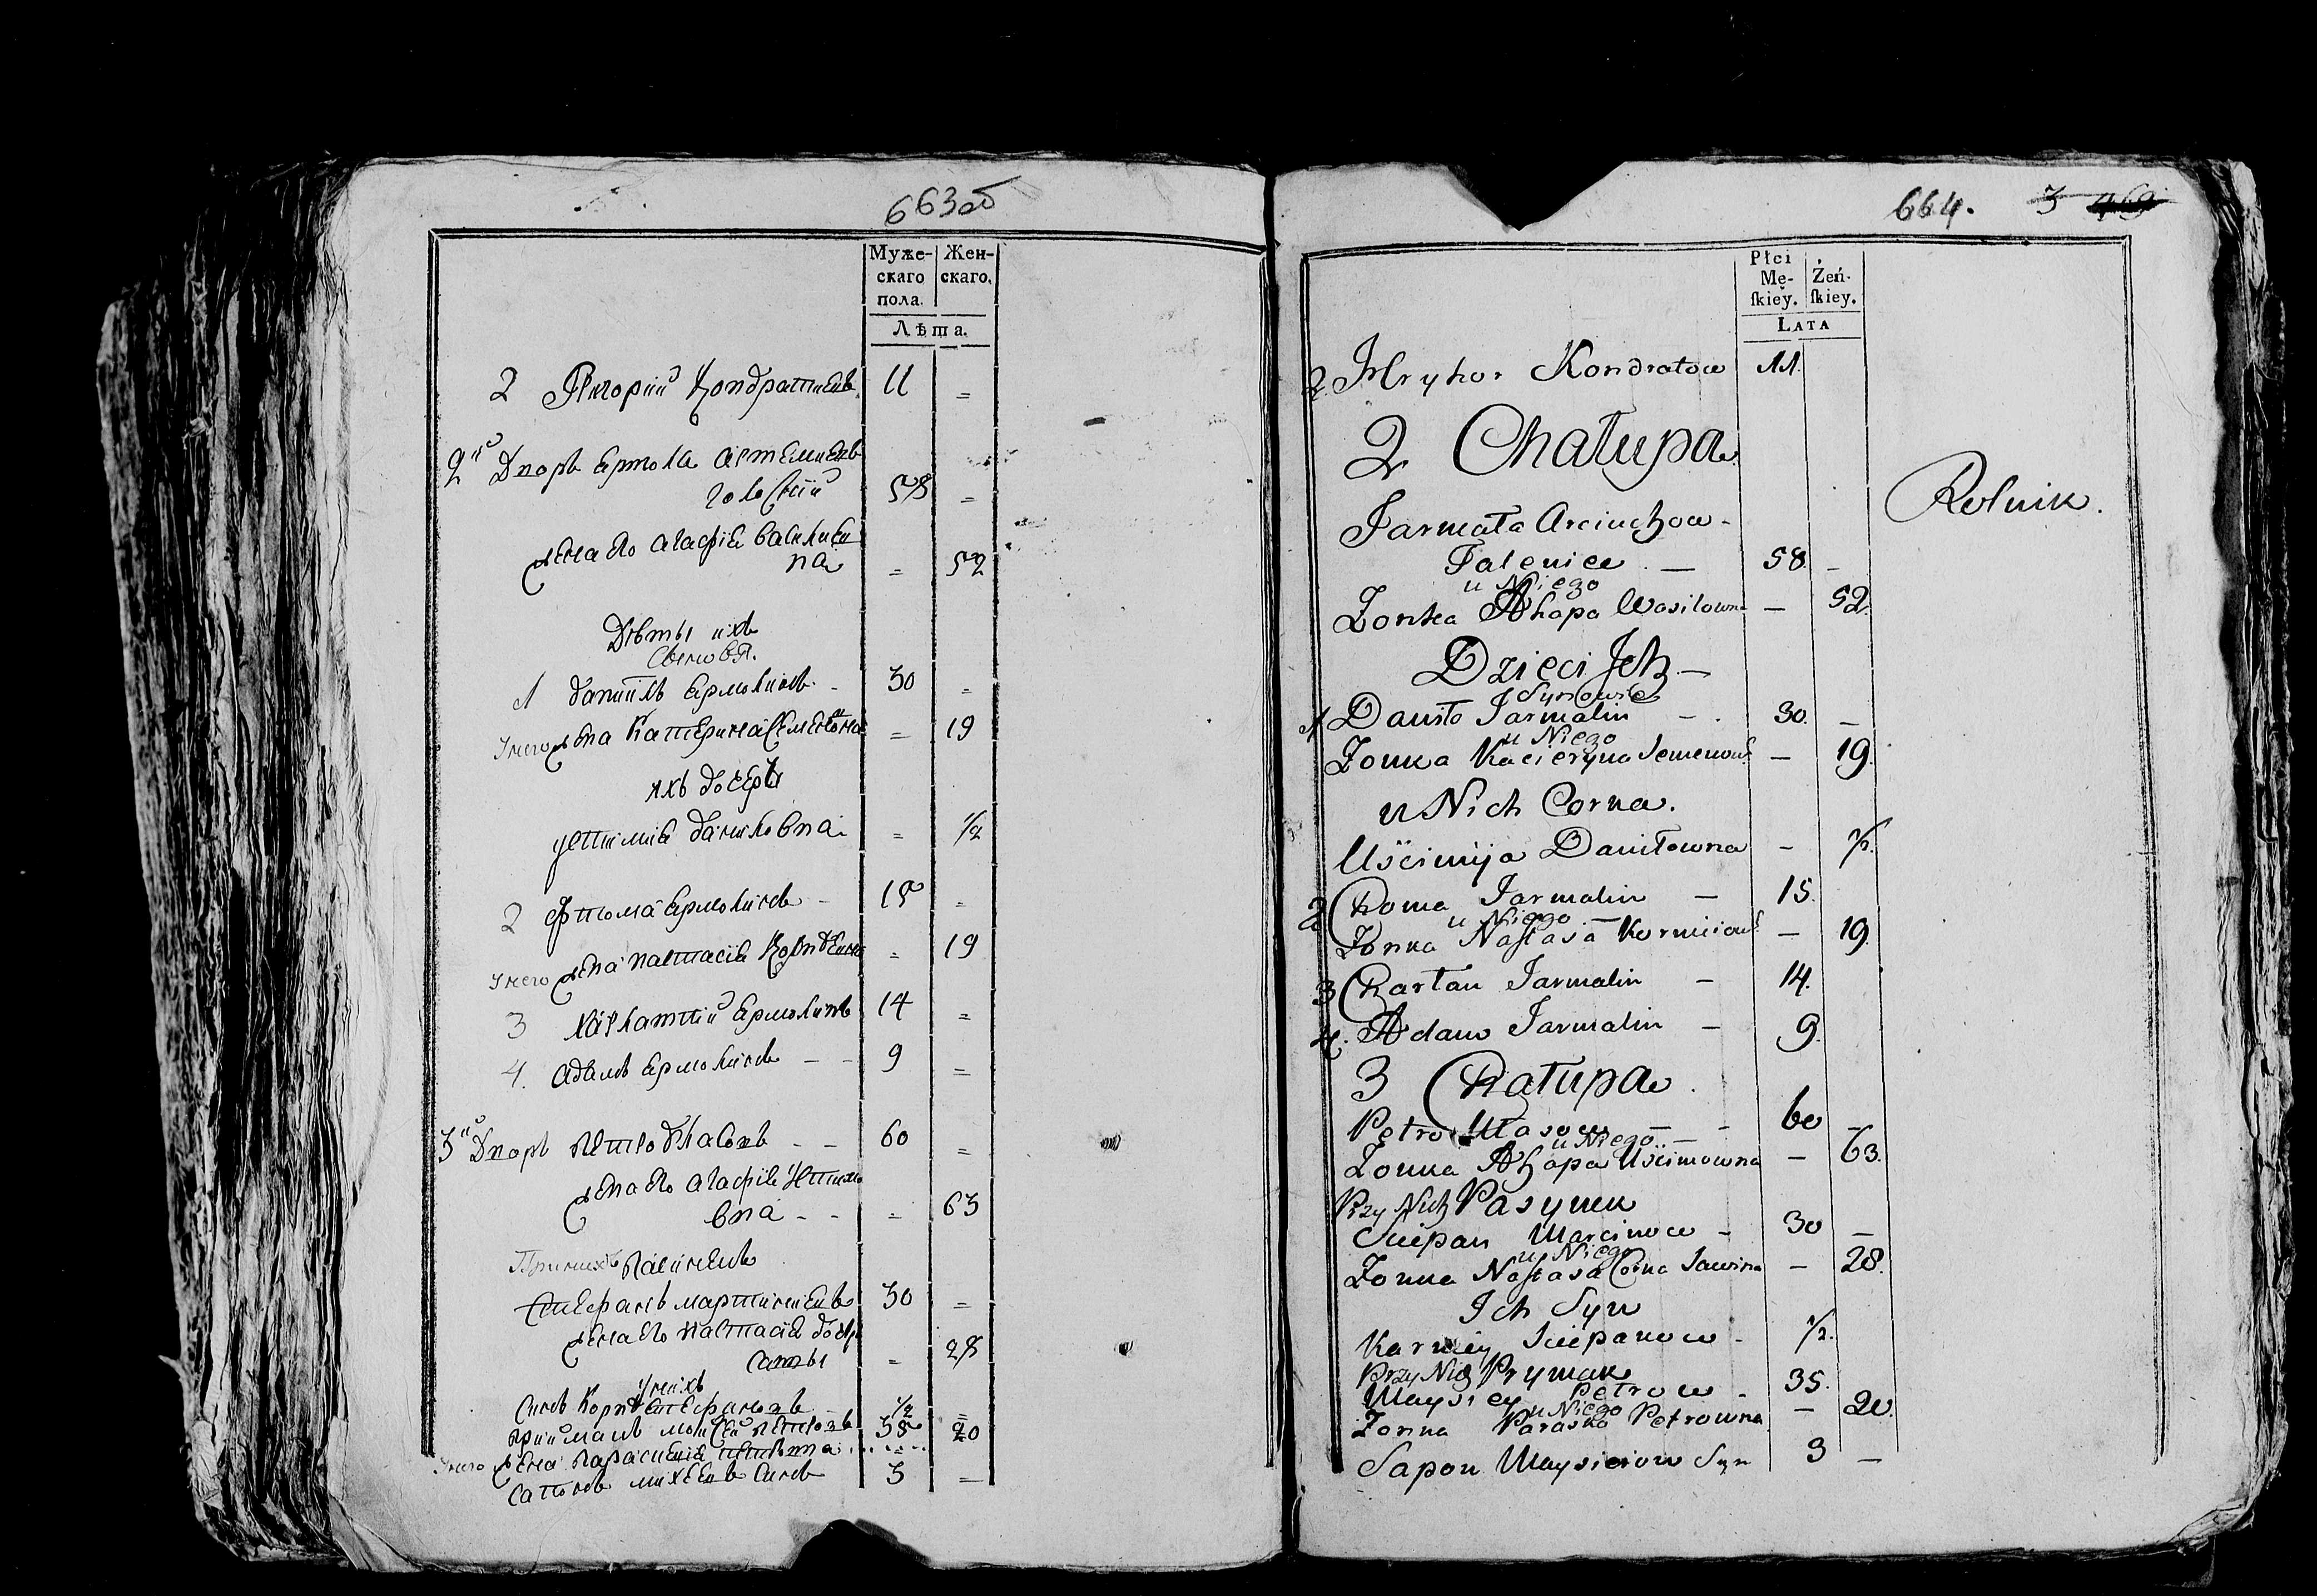 663об
Муже-
скаго
пола.
Жен-
скаго.
Лѣта.
2 Григорий Кондратиевъ 11 =
2й Дворъ Ермола Артемиевъ
58 =
жена его Агафия Василиев
на = 52
Дѣти ихъ
Сыновя.
1 Даниилъ Ермолинъ - 30 =
У него жена Катерина Семенова = 19
ихъ дочерь
Устимия Данилковна = 1/2
2 Фтома Ермолинъ - 15 =
У него жена Настасия = 19
3 Ермолинъ 14 =
4. Адамъ Ермолинъ - - 9 =
3й Дворъ Петро Власовъ - - 60 =
жена его Агафия Устимо
вна - - = 63
При нихъ Пасинокъ
Стефанъ Мартиниевъ 30 =
жена его Настасия дочерь
Саввы = 28
у нихъ
Синъ Корней Стефановъ 1/2 =
Приймакъ Мойсей Петровъ 35 =
У него жена Параския Петровна 20
Сапонъ синъ 3 —
664. 3 469
Płci
Mę-
ſkiey.
Żeń-
ſkiey.
LATA
2. Hryhor Kondratow 11.
2 Chałupa
Rolnik.
Jarmoła Arciuchow -
58. -
u Niego
Zonka Ahapa Wasilowna — 52.
Dzieci Jch —
Synowie
1 Daniło Jarmalin - . 30. —
u Niego
Zonka Kacieryna Semenow. — 19.
u Nich Corka.
Uścimija Daniłowna - 1/2.
2 Choma Jarmalin — 15.
u Niego —
Zonka Nastasa Kornieiow. — 19.
3 Charłan Jarmalin — 14.
4. Adam Jarmalin — 9.
3 Chałupa .
Petro Ułasow — - 60 —
u Niego —
Zonka Ahapa Uścimowna — 63.
Przy Nich Pasynek
Sciepan Marcinow - 30 —
u Niego
Zonka Nastasa Corka Sawina — 28.
Jch Syn
Karniey Sciepanow - 1/2.
Przy Nich Prymak
Maysiey Petrow - 35.
u Niego
Zonka Paraska Petrowna — 20.
Sapon Maysieiow Syn 3 —